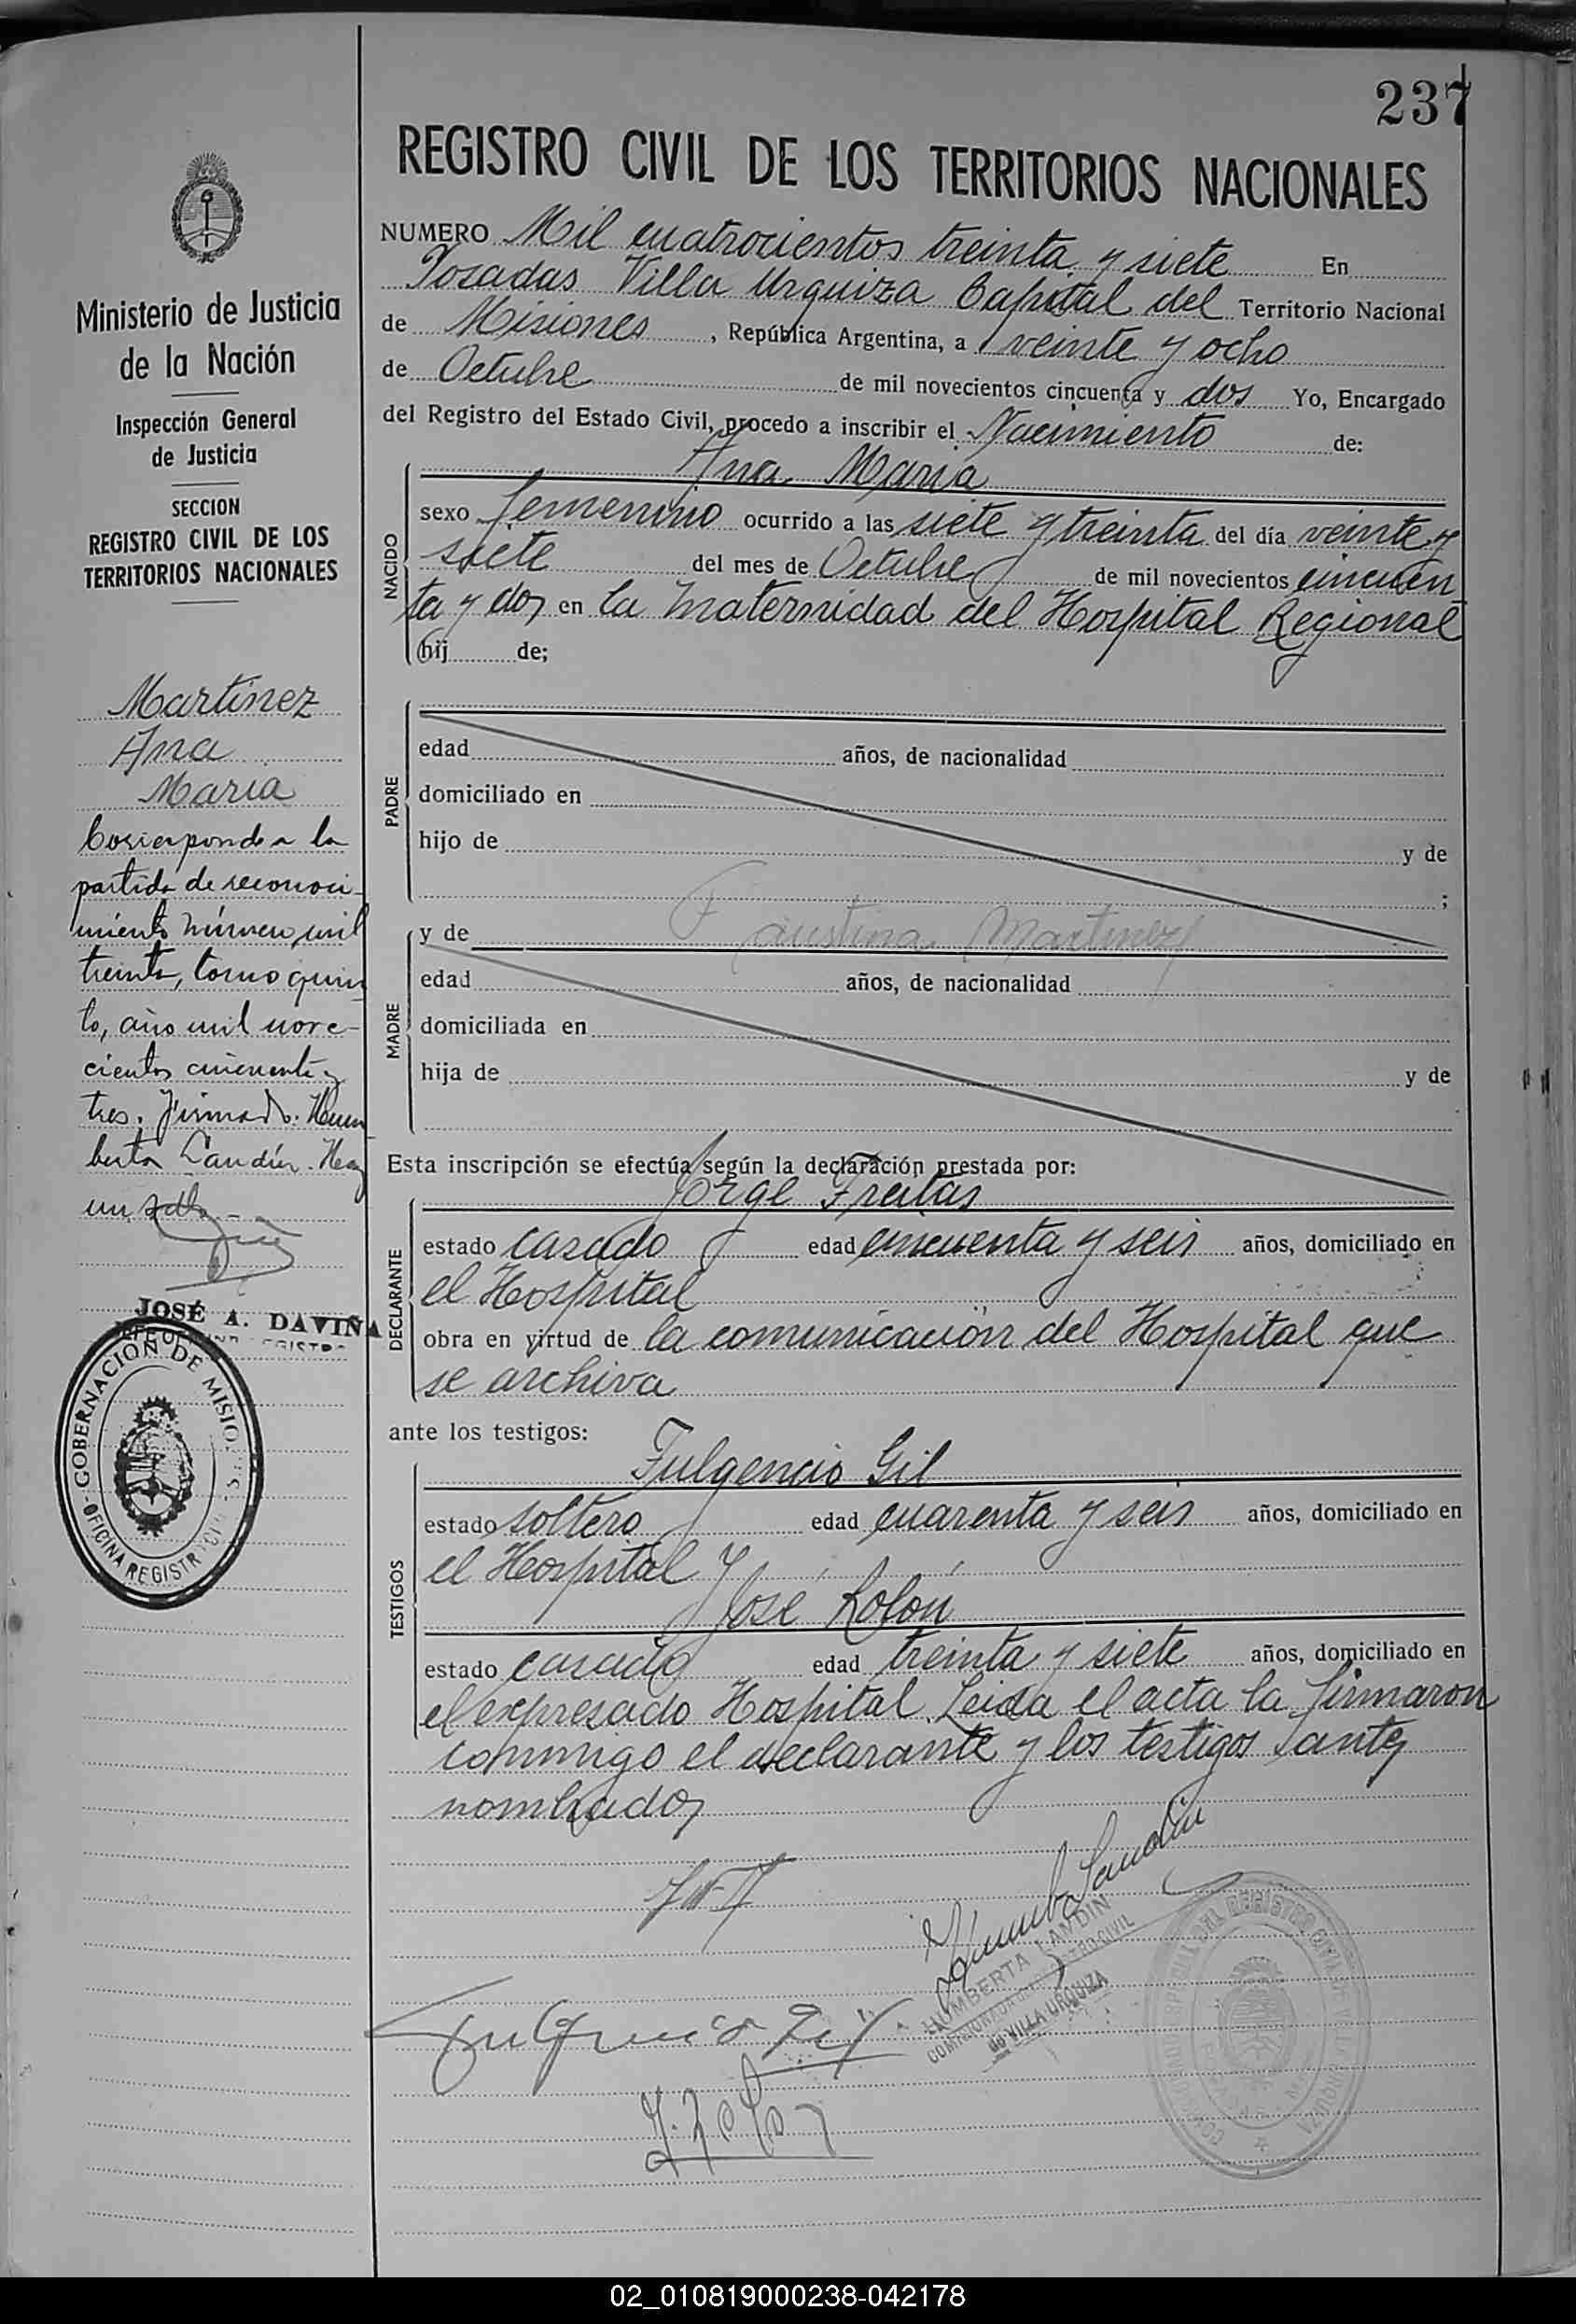 237
REGISTRO CIVIL DE LOS TERRITORIOS NACIONALES
NUMERO Mil cuatrocientos treinta y siete En
Posadas Villa Urquiza Capital del Territorio Nacional
de Misiones, República Argentina, a veinte y ocho
de Octubre de mil novecientos cincuenta y dos Yo, Encargado
del Registro del Estado Civil, procedo a inscribir el Nacimiento de:
Ana María
NACIDO
sexo femenino ocurrido a las siete y treinta del día veinte y
siete del mes de Octubre de mil novecientos cincuen
ta y dos en la Maternidad del Hospital Regional
hij de;
PADRE
edad años, de nacionalidad
domiciliado en
hijo de y de
;
MADRE
y de Faustina Martinez
edad años, de nacionalidad
domiciliada en
hija de y de
Esta inscripción se efectúa según la declaración prestada por:
Jorge Freitas
DECLARANTE
estado casado edad cincuenta y seis años, domiciliado en
el Hospital
obra en virtud de la comunicación del Hospital que
se archiva
ante los testigos:
Fulgencio Gil
TESTIGOS
estado soltero edad cuarenta y seis años, domiciliado en
el Hospital y
José Rolón
estado casado edad treinta y siete años, domiciliado en
el expresado Hospital Leida el acta la firmaron
conmigo el declarante y los testigos antes
nombrados
Humberta Landin
HUMBERTA LANDIN
de VILLA URQUIZA
Fulgencio Gil
J. Rolon
Ministerio de Justicia
de la Nación
Inspección General
de Justicia
SECCION
REGISTRO CIVIL DE LOS
TERRITORIOS NACIONALES
Martinez
Ana
Maria
Corresponde a la
partida de reconoci-
miento número mil
treinta, tomo quin
to, año mil nove-
cientos cincuenta y
tres. Firmado: Hum
berta Landín. Hay
un sello
JOSÉ A. DAVIÑA
GOBERNACION DE MISIONES
OFICINA REGISTRO CIVIL
02_010819000238-042178